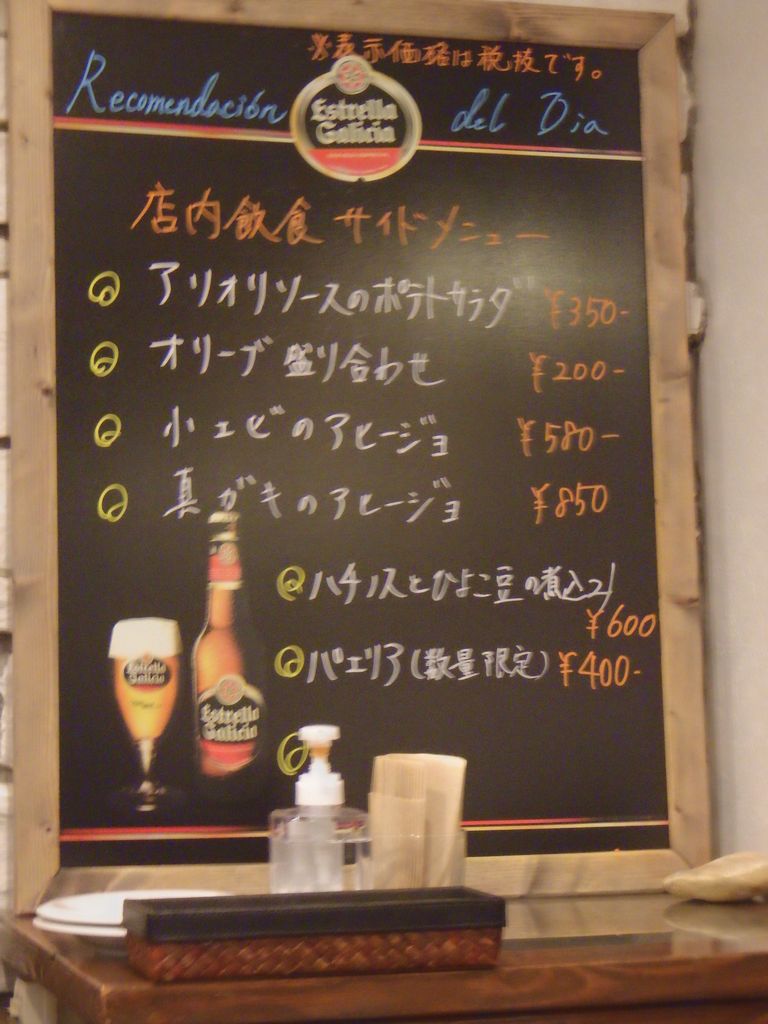 ※表示価格は税抜です。
Recomendación del Dia
Estrella
Galicia
店内飲食 サイドメニュー
アリオリソースのポテトサラダ ¥350-
オリーブ盛り合わせ ¥200-
小エビのアヒージョ ¥580-
真ガキのアヒージョ ¥850
ハチノスとひよこ豆の煮込み
¥600
パエリア(数量限定) ¥400-
Estrella
Galicia
Estrella
Galicia